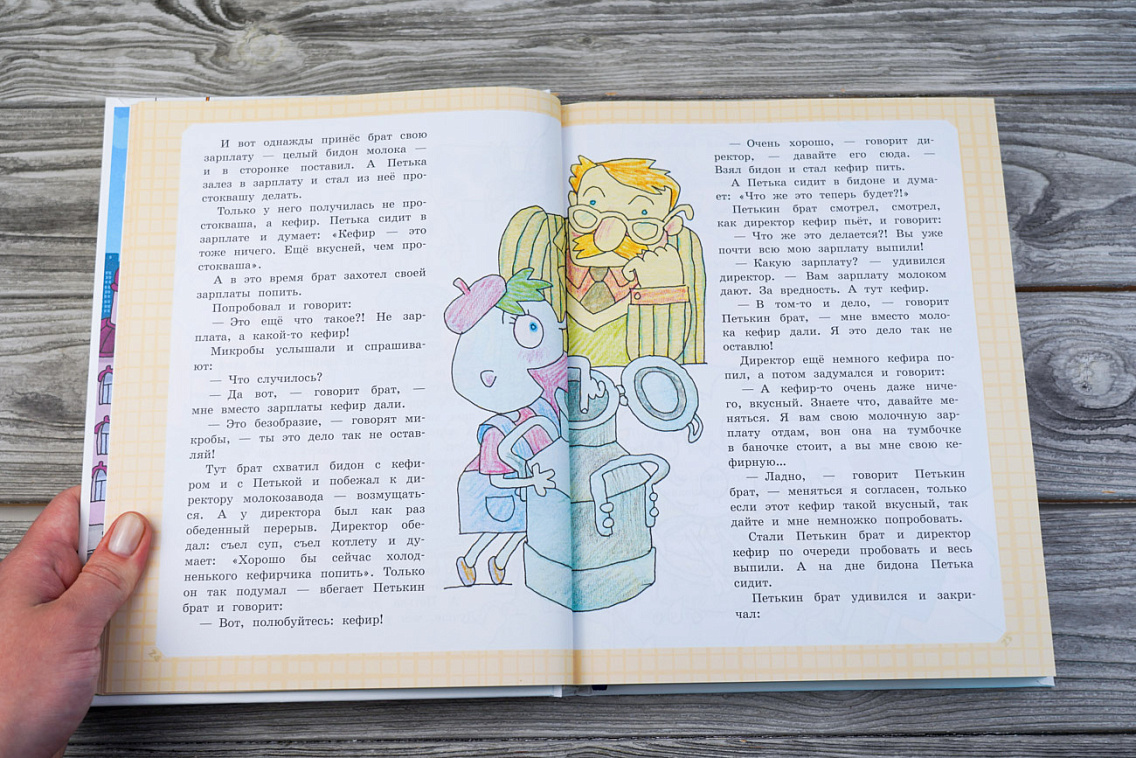 И вот однажды принёс брат свою
зарплату — целый бидон молока —
и в сторонке поставил. А Петька
залез в зарплату и стал из неё про-
стоквашу делать.
Только у него получилась не про-
стокваша, а кефир. Петька сидит в
зарплате и думает: «Кефир — это
тоже ничего. Ещё вкусней, чем про-
стокваша».
А в это время брат захотел своей
зарплаты попить.
Попробовал и говорит:
— Это ещё что такое?! Не зар-
плата, а какой-то кефир!
Микробы услышали и спрашива-
ют:
— Что случилось?
— Да вот, — говорит брат, —
мне вместо зарплаты кефир дали.
— Это безобразие, — говорят ми-
кробы, — ты это дело так не остав-
ляй!
Тут брат схватил бидон с кефи-
ром и с Петькой и побежал к ди-
ректору молокозавода — возмущать-
ся. А у директора был как раз
обеденный перерыв. Директор обе-
дал: съел суп, съел котлету и ду-
мает: «Хорошо бы сейчас холод-
ненького кефирчика попить». Только
он так подумал — вбегает Петькин
брат и говорит:
— Вот, полюбуйтесь: кефир!
— Очень хорошо, — говорит ди-
ректор, — давайте его сюда. —
Взял бидон и стал кефир пить.
А Петька сидит в бидоне и дума-
ет: «Что же это теперь будет?!»
Петькин брат смотрел, смотрел,
как директор кефир пьёт, и говорит:
— Что же это делается?! Вы уже
почти всю мою зарплату выпили!
— Какую зарплату? — удивился
директор. — Вам зарплату молоком
дают. За вредность. А тут кефир.
— В том-то и дело, — говорит
Петькин брат, — мне вместо моло-
ка кефир дали. Я это дело так не
оставлю!
Директор ещё немного кефира по-
пил, а потом задумался и говорит:
— А кефир-то очень даже ниче-
го, вкусный. Знаете что, давайте ме-
няться. Я вам свою молочную зар-
плату отдам, вон она на тумбочке
в баночке стоит, а вы мне свою ке-
фирную...
— Ладно, — говорит Петькин
брат, — меняться я согласен, только
если этот кефир такой вкусный, так
дайте и мне немножко попробовать.
Стали Петькин брат и директор
кефир по очереди пробовать и весь
выпили. А на дне бидона Петька
сидит.
Петькин брат удивился и закри-
чал: